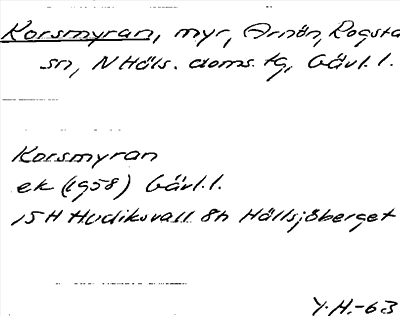 Korsmyran, myr, Arnön, Rogsta
sn, N Häls. doms. tg, Gävl. l.
Korsmyran
ek (1958) Gävl. l.
15H Hudiksvall 8h Hällsjöberget
Y.H.-63